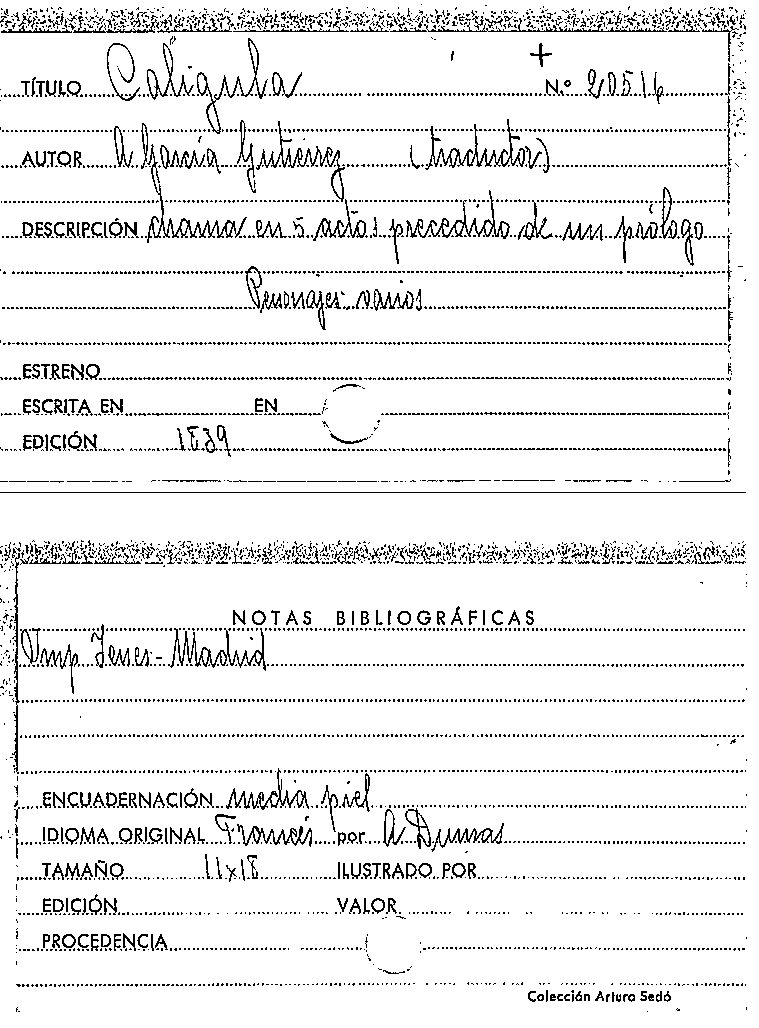 TÍTULO Caligula N.º 20516
AUTOR A García Gutiérrez (traductor)
DESCRIPCIÓN drama en 5 actos precedido de un prólogo
Personajes varios
ESTRENO
ESCRITA EN EN
EDICIÓN 1839
NOTAS BIBLIOGRÁFICAS
Ymp Yenes - Madrid
ENCUADERNACIÓN media piel
IDIOMA ORIGINAL Francés por A Dumas
TAMAÑO 11x18 ILUSTRADO POR
EDICIÓN VALOR
PROCEDENCIA
Colección Arturo Sedó